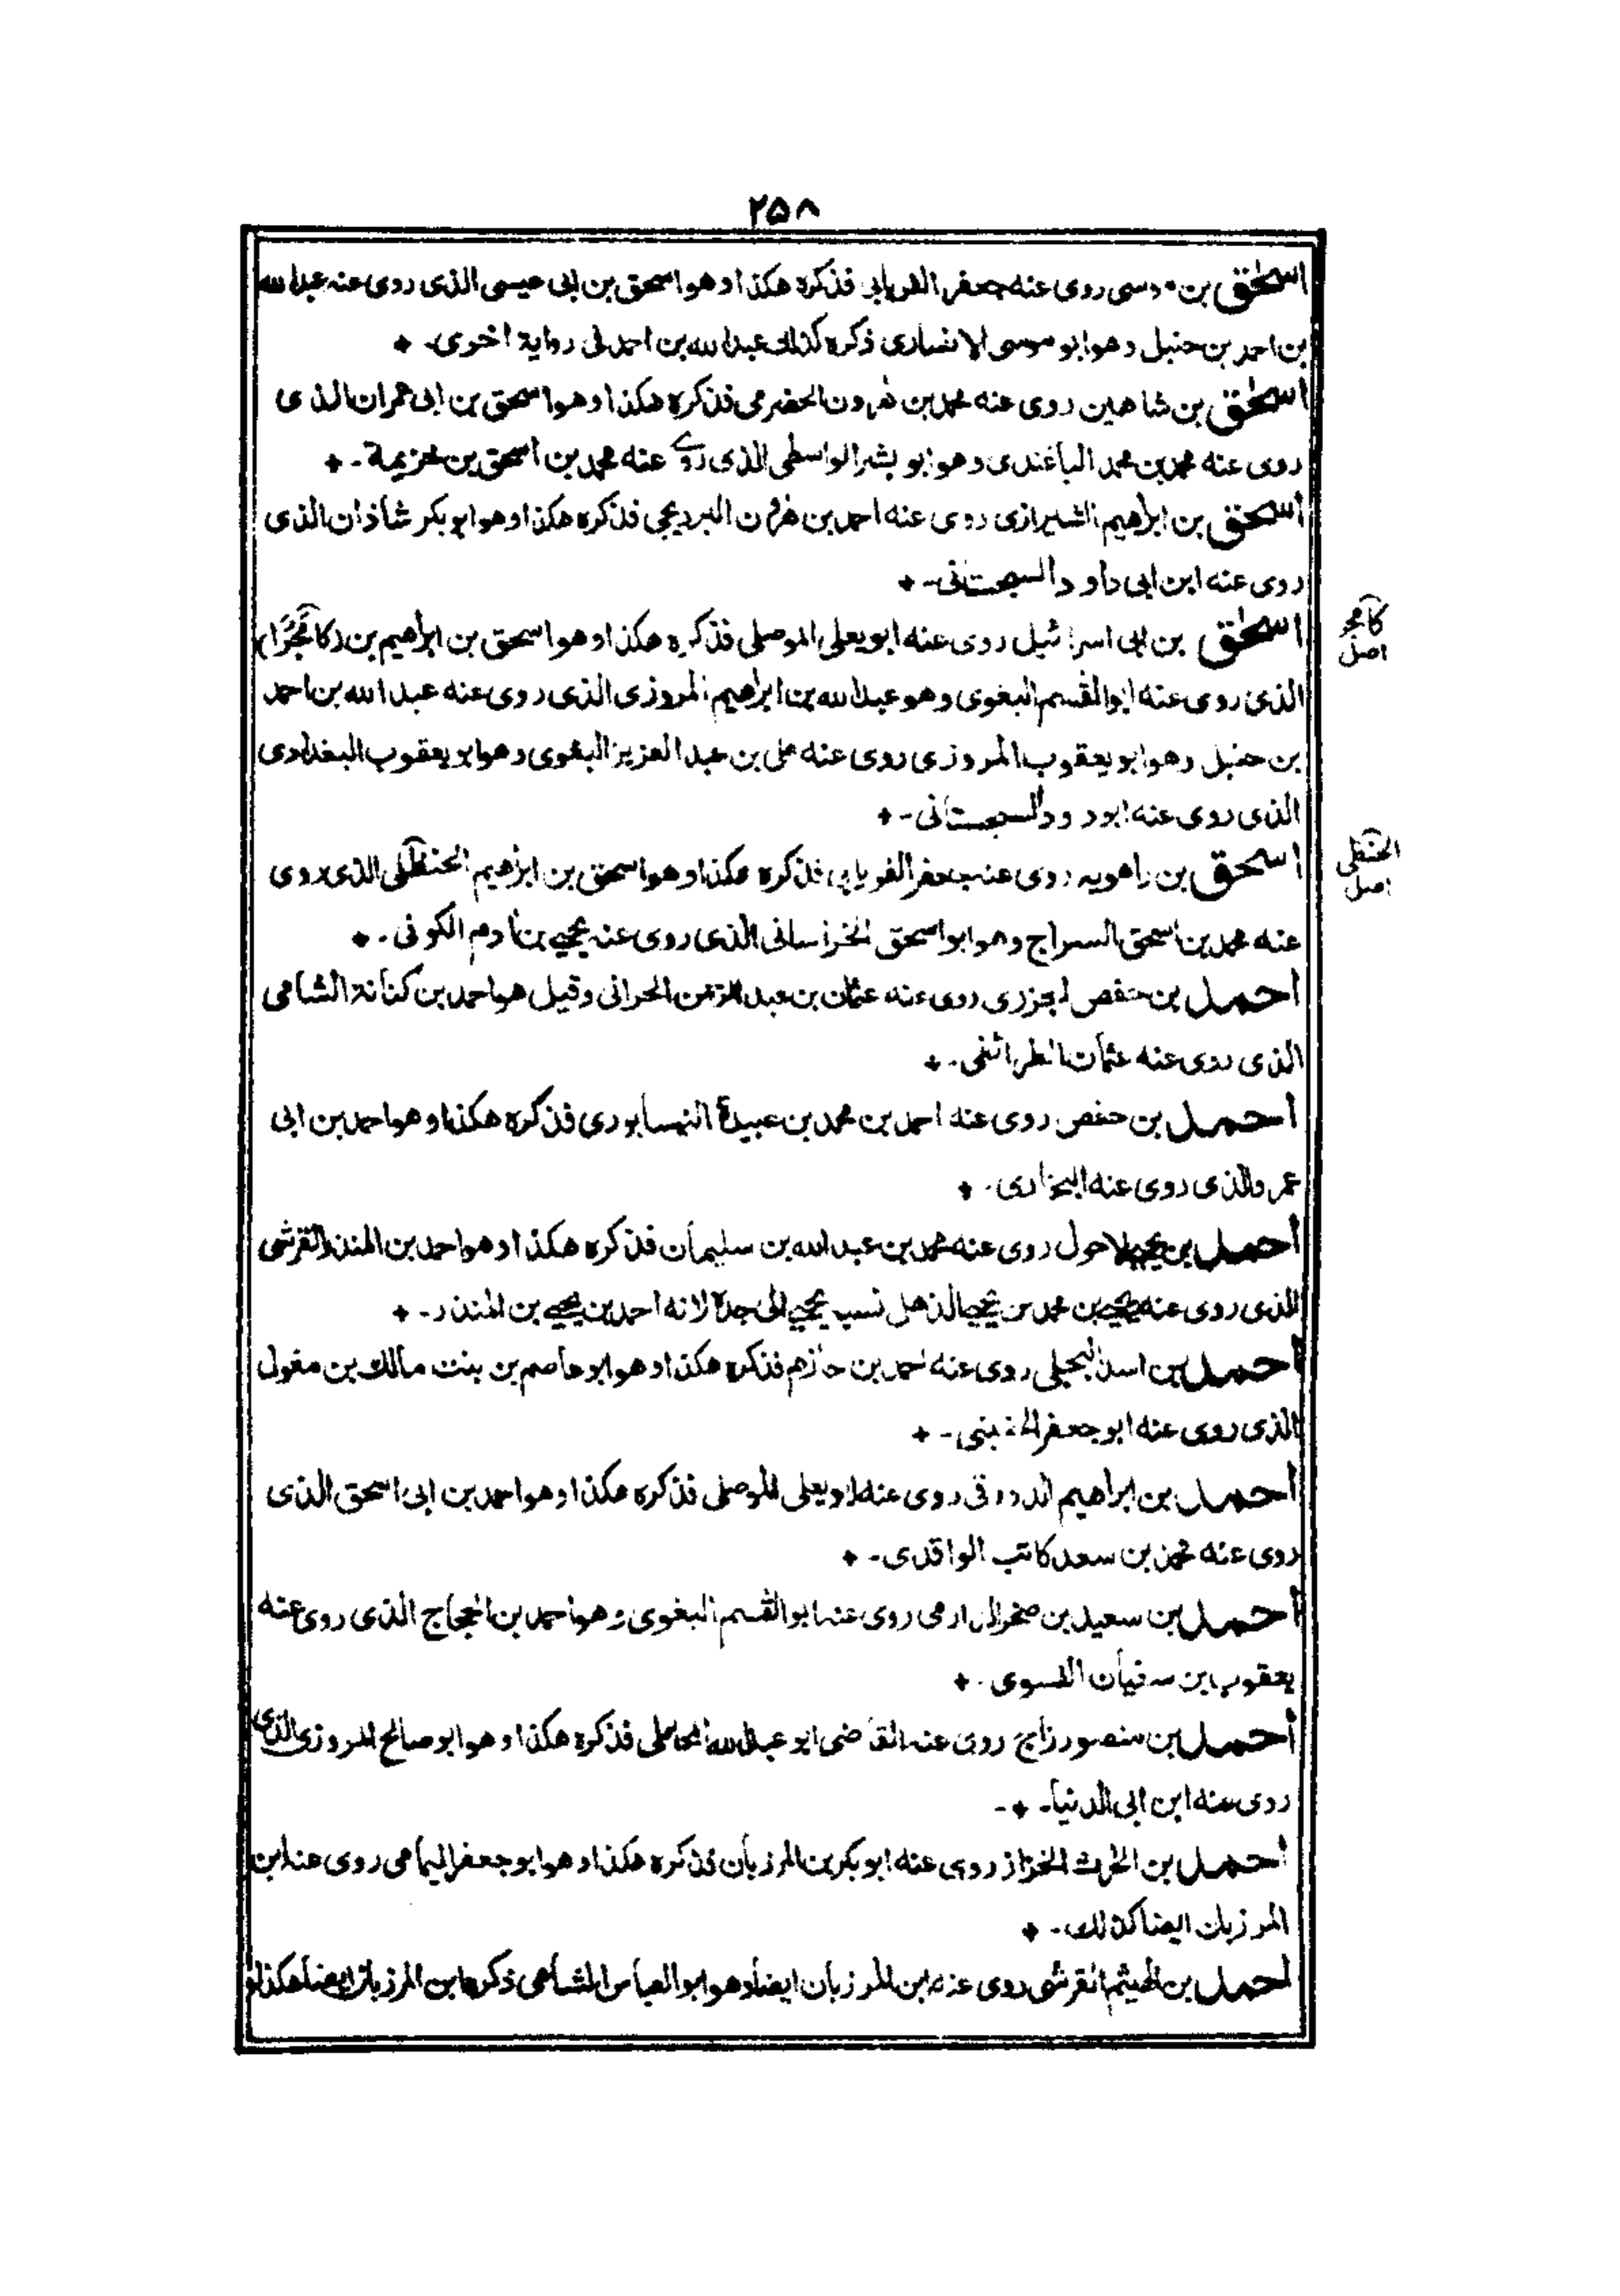 ٢٥٨
اسحٰق بن موسى روى عنه جعفر الفريابي فذكره هكذا وهو اسحق بن ابى عيسى الذى روى عنه عبد الله
بن احمد بن حنبل وهو ابو موسى الانصارى ذكره كذلك عبد الله بن احمد فى رواية اخرى ۔
اسحٰق بن شاهين روى عنه محمد بن هٰرون الحضرمى فذكره هكذا وهو اسحق بن ابى عمران الذى
روى عنه محمد بن محمد الباغندى وهو ابو بشر الواسطى الذى روے عنه محمد بن اسحق بن خزيمة ۔
اسحٰق بن ابرٰهيم الشيرازى روى عنه احمد بن هٰرون البرديجى فذكره هكذا وهو ابو بكر شاذان الذى
روى عنه ابن ابى داود السجستانى ۔
اسحٰق بن ابى اسرائيل روى عنه ابو يعلى الموصلى فذكره هكذا وهو اسحق بن ابرٰهيم بن (كامَجْرَا)
كامجر
اصل
الذى روى عنه ابو القٰسم البغوى وهو عبد الله بن ابراهيم المروزى الذى روى عنه عبد الله بن احمد
بن حنبل وهو ابو يعقوب المروزى روى عنه على بن عبد العزيز البغوى وهو ابو يعقوب البغدادى
الذى روى عنه ابود ود السجستانى ۔
اسحق بن راهويه روى عنه جعفر الفريابى فذكره هكذا وهو اسحق بن ابرٰهيم الحنظلى الذى روى
الحنظلى
اصل
عنه محمد بن اسحق السراج وهو ابو اسحق الخراسانى الذى روى عنه يحيى بن اٰدم الكوفى ۔
احمد بن حفص الجزرى روى عنه عثمان بن عبد الرحمن الحرانى وقيل هو احمد بن كنانة الشامى
الذى روى عنه عثمان الطرائفى ۔
احمد بن حفص روى عنه احمد بن محمد بن عبيدة النيسابورى فذكره هكذا وهو احمد بن ابى
عمرو الذى روى عنه البخارى ۔
احمد بن يحيى الاحول روى عنه محمد بن عبد الله بن سليمان فذكره هكذا وهو احمد بن المنذر القرشى
الذى روى عنه يحيى بن محمد بن يحيى الذهلى نسب يحيى الى جده لانه احمد بن يحيى بن المنذر ۔
احمد بن اسد البجلى روى عنه احمد بن حازم فذكره هكذا وهو ابو عاصم بن بنت مالك بن مغول
الذى روى عنه ابو جعفر
احمد بن ابراهيم الدورقى روى عنه ابو يعلى الموصلى فذكره هكذا وهو احمد بن ابى اسحق الذى
روى عنه محمد بن سعد كاتب الواقدى ۔
احمد بن سعيد بن صخر الدارمى روى عنه ابو القٰسم البغوى وهو احمد بن الحجاج الذى روى عنه
يعقوب بن سفيان الفسوى ۔
احمد بن منصور زاج روى عنه القاضى ابو عبد الله المحاملى فذكره هكذا وهو ابو صالح المروزى الذى
روى عنه ابن ابى الدنيا ۔
احمد بن الحٰرث الخزاز روى عنه ابو بكر بن المرزبان فذكره هكذا وهو ابو جعفر اليمامى روى عنه ابن
المرزبان ايضا كذلك ۔
احمد بن الهيثم القرشى روى عنه ابن المرزبان ايضا وهو ابو العباس الشامى ذكره ابن المرزبان ايضا هكذا